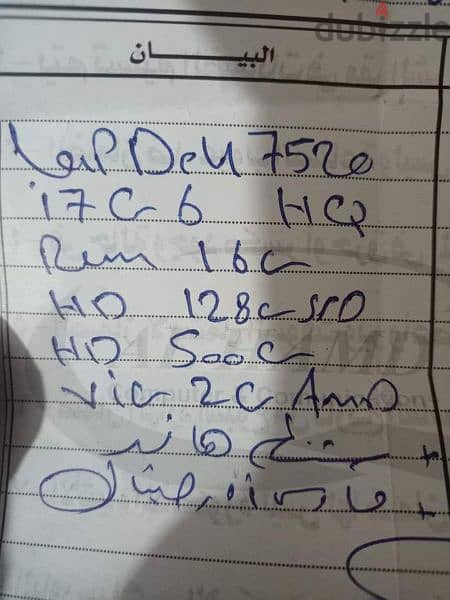 dubizzle
البيان
Lap Dell 7520
i7 G 6 HCQ
Rem 16G
HD 128G SSD
HD 500G
VIG 2G AMD
+ شنطة هاند
+ ماوس